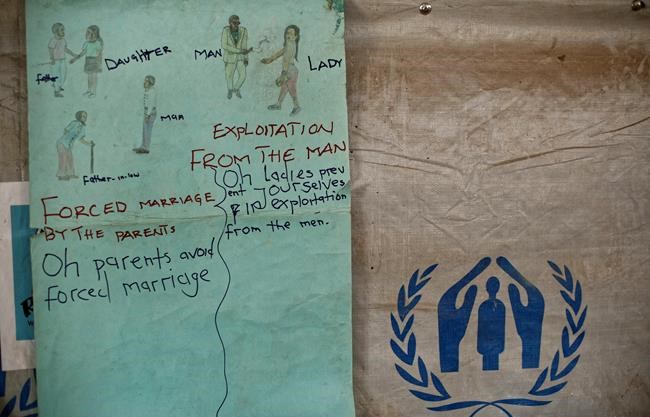 Father
DAUGHTER
MAN
LADY
MAN
Father-in-law
FORCED MARRIAGE
BY THE PARENTS
Oh parents avoid
forced marriage
EXPLOITATION
FROM THE MAN
Oh ladies prev
ent yourselves
exploitation
from the men.